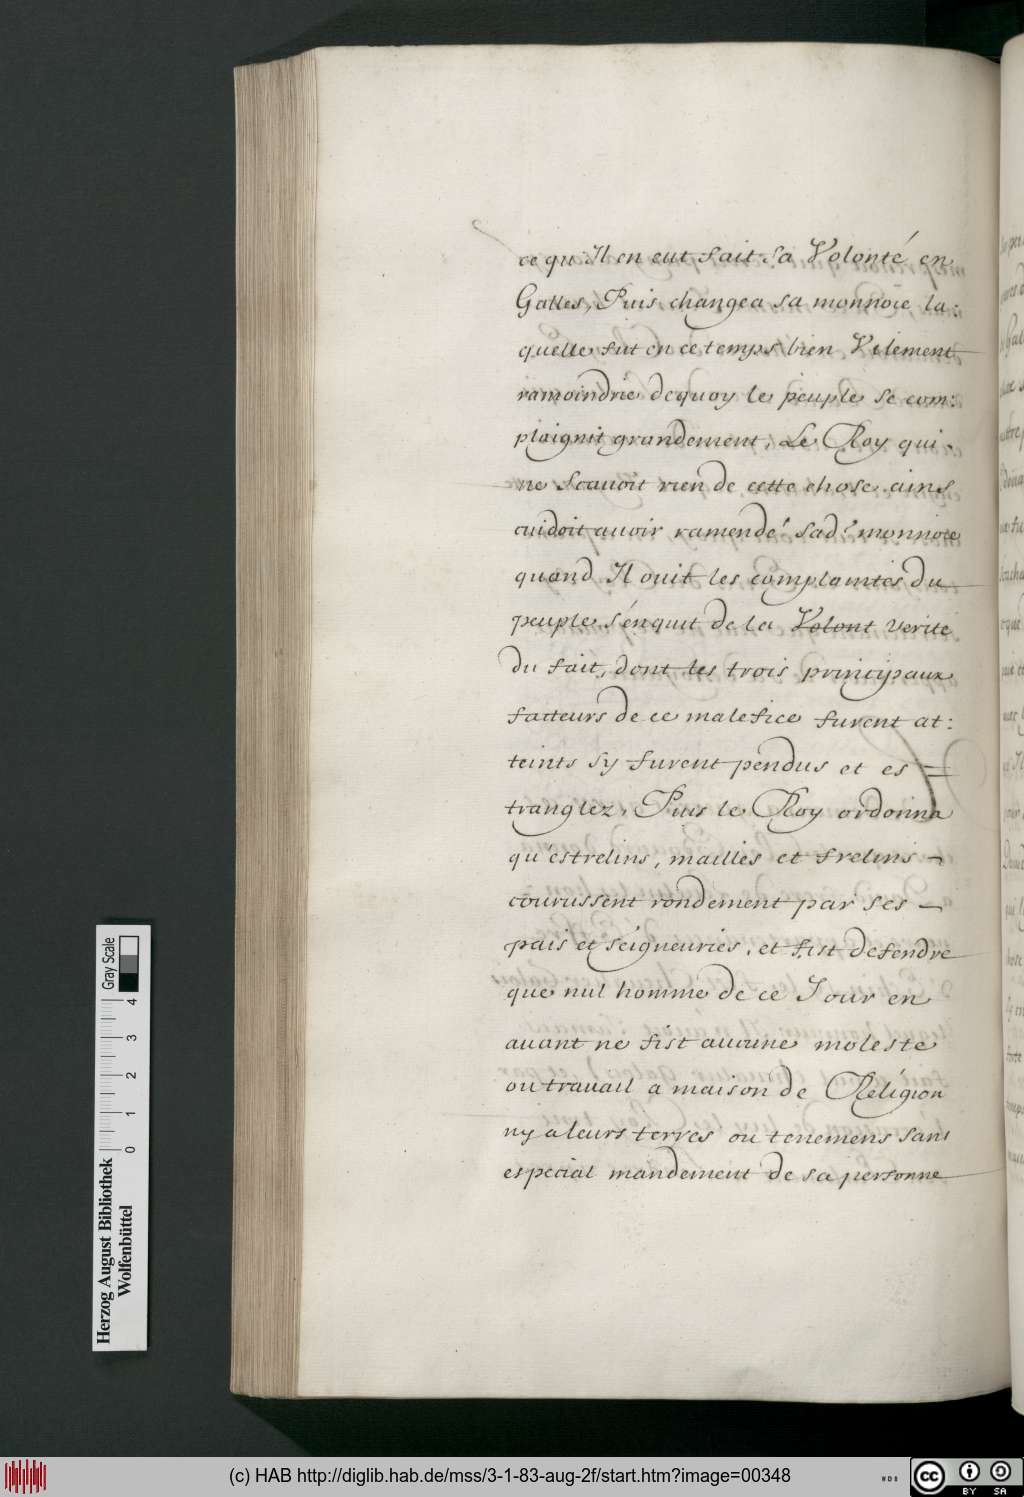 ce qu'Il en eut fait sa Volonté en
Galles, Puis changea sa monnoie la:
quelle fut en ce temps bien Vilement
ramoindrie dequoy le peuple se com:
plaignit grandement, Le Roy qui
ne scauoit rien de cette chose ains
cuidoit auoir ramendé sad? monnoie
quand Il ouit les complaintes du
peuple s'énquit de la Volont verité
du fait, dont les trois principaux
facteurs de ce malefice furent at:
teints sy furent pendus et es =
tranglez, Puis le Roy ordonna
qu'estrelins, mailles et frelins -
courussent rondement par ses -
pais et seigneuries, et fist defendre
que nul homme de ce Jour en
auant ne fist aucune moleste
ou trauail a maison de Réligion
ny a leurs terres ou tenemens sans
especial mandement de sa personne
Herzog August Bibliothek
Wolfenbüttel
0 1 2 3 4
Gray Scale
(c) HAB http://diglib.hab.de/mss/3-1-83-aug-2f/start.htm?image=00348
cc BY SA